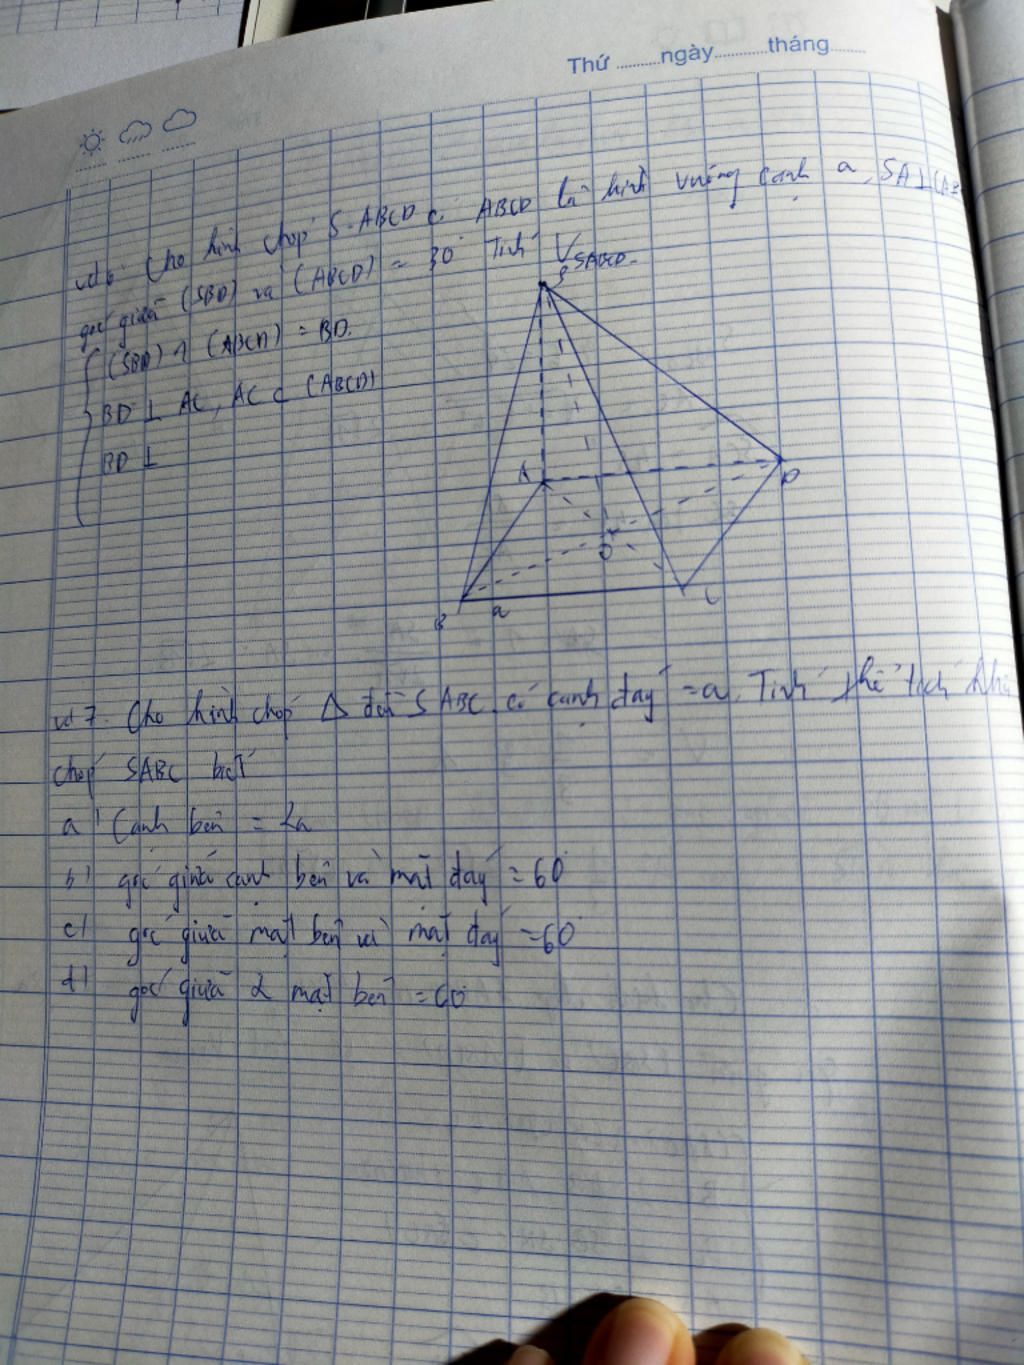 Thứ ..........ngày............tháng........
vd 6 Cho hình chóp S.ABCD có ABCD là hình vuông cạnh a, SA ⊥ (AB
góc giữa (SBD) và (ABCD) = 30° Tính V SABCD.
(SBD) ∩ (ABCD) = BD.
BD ⊥ AC, AC ⊂ (ABCD)
BD ⊥
S
A
D
O
B
a
C
vd 7. Cho hình chóp Δ đều SABC có cạnh đáy = a. Tính thể tích khối
chóp SABC biết
a) Cạnh bên = 2a
b) góc giữa cạnh bên và mặt đáy = 60°
c) góc giữa mặt bên và mặt đáy = 60°
d) góc giữa 2 mặt bên = 60°